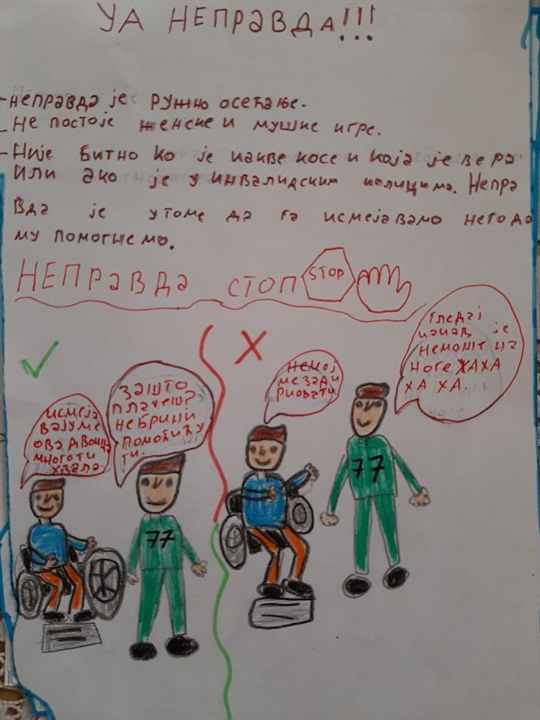 УА НЕПРАВДА!!!
-неправда је ружно осећање.
-Не постоје женске и мушке игре.
-Није битно ко је какве косе и која је вера
или ако је у инвалидским колицима. Непра
вда је у томе да га исмејавамо него да
му помогнемо.
НЕПРАВДА СТОП STOP
исмеја
вајуме
ова двоица
многоти
хвала
зашто
плачеш?
небрини
помоћићу
ти.
немој
ме зади
ркивати
гледај
какав је
неможе на
ноге ХАХА
ХА ХА.
77
77